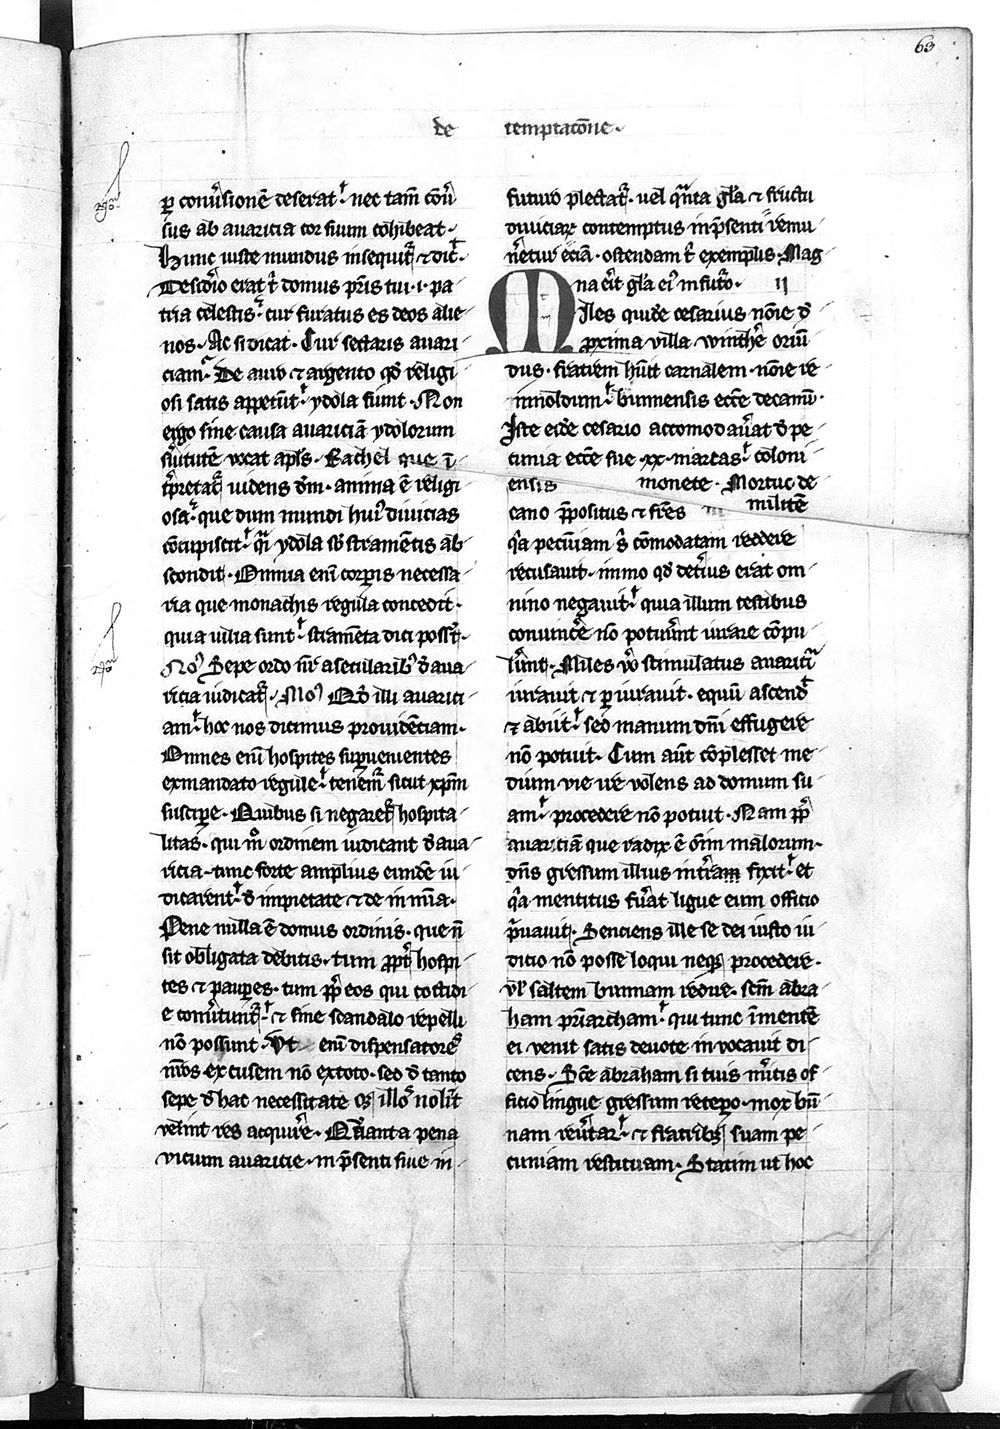 63
de temptac̄one.
ꝑ conu̾sionē deserat. nec tam̄ cōu̾
sus ab auaricia cor suum cohibeat.
Hunc iuste mundus insequit᷑ ⁊ dic̄.
Desid̾io erat ī domus pr̄is tui. i. pa
tria celestis. cur furatus es deos alie
nos. Ac si dicat. Cur sectaris auari
ciam. De auro ⁊ argento qd̄ religi
osi satis appetūt ydola fiunt. Non
ergo sine causa auariciā ydolorum
s̾uitutē vocat apl̄s. Rachel que ī
t̾pretat᷑ uidens dm̄. anima ē religi
osa. que dum mundi huiꝰ diuicias
cōcupiscit. q̄si ydola sb̄ stramētis ab
scondit. Omnia eni corꝑis necessa
ria que monachis regula concedit.
quia uilia sunt. stramēta dici possūt.
Noꝰ Sepe ordo nr̄ a secularibꝰ d̄ aua
ricia iudicat᷑. Moꝰ Qd̄ illi auarici
am. hoc nos dicimus prouidēciam.
Omnes eni hospites suꝑuenientes
ex mandato regule. tenem᷑ sicut xp̄m
suscipe. Quibus si negaret᷑ hospita
litas. qui m̊ ordinem iudicant d̄ aua
ricia. tunc forte amplius eundē iu
dicarent. d̄ impietate ⁊ de in mīa.
Pene nulla ē domus ordinis. que n̄
sit obligata debitis. tum ꝓpt̾ hospi
tes ⁊ pauꝑes. tum ꝓpt̾ eos qui cottidi
e conu̾tunt᷑. ⁊ sine scandalo repelli
nō possunt. Vt eni dispensatores
nr̄os excusem nō ex toto. sed d̄ tanto
sepe d̄ hac necessitate os̄ illos nolīt
velint res acquire᷑. Quanta pena
vicium auaricie. in p̄senti siue in
futuro plectat᷑. uel quāta gl̄a ⁊ fructu
diuiciaꝝ contemptus in p̄senti remu
n̄etur eciā. ostendam t᷑ exemplis. Mag
na erit gl̄a eiꝰ in futuro. ii
Miles quidē cesarius nōie d̄
ꝓxima villa winthere oriū
dus. fratrem hūit carnalem. nōie re
innoldum. bunnensis eccē decanū.
Iste eidē cesario accomodau̾at d̄ pe
cunia eccē sue .xx. marcas. coloni
ensis monete. Mortuo de
cano p̄positus ⁊ fr̄es militē
q̄a pecuniam s̄ cōmodatam reddere
recusauit. immo qd̄ det̾ius erat om
nino negauit. quia illum testibus
conuincē nō potu̾unt iurare cōpu
l̾unt. Miles v̾o stimulatus auaricia
iurauit ⁊ ꝑ iurauit. equū ascendēs
⁊ abiit. sed manum dn̄i effugere
nō potuit. Cum aūt cōplesset me
dium vie ire volens ad domum su
am. procedere nō potuit. Nam ꝓpt̾
auariciam que radix ē ōim malorum.
dn̄s gressum illius int̾iam fixit. et
q̄a mentitus fu̾at ligue eum officio
p̄uauit. Senciens ille se dei iusto iu
dicio nō posse loqui neqꝫ procedere.
vl̄ saltem bunnam redire. scm̄ abra
ham priarcham. qui tunc ī mentē
ei venit satis deuote inuocauit di
cens. Scē abraham si tuis m̾itis of
ficio lingue gressum recepo. mox bū
nam reu̾tar. ⁊ fratribꝫ suam pe
cuniam restituam. Statim ut hoc